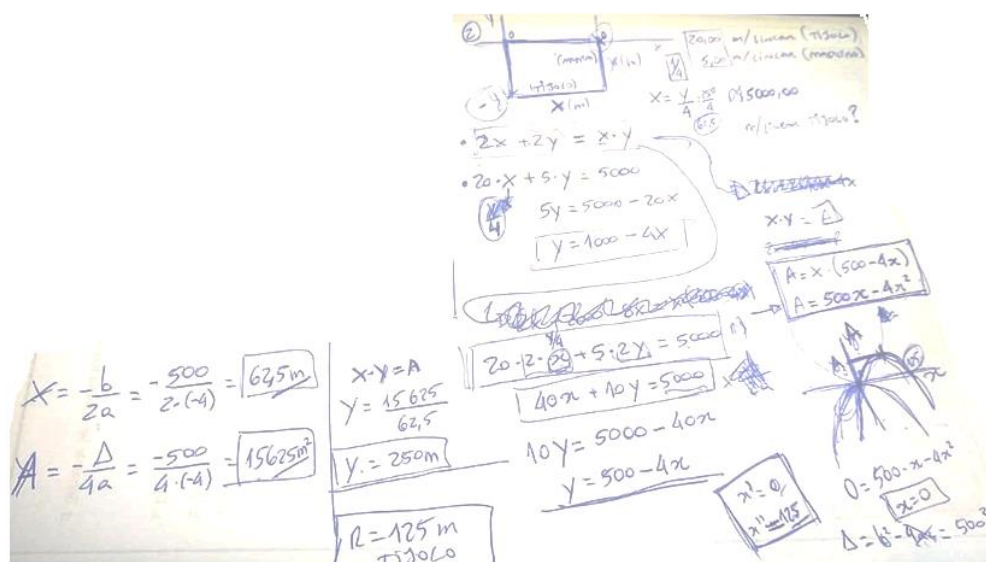 2
20,00 m/linear (TIJOLO)
5,00 m/linear (MADEIRA)
(TIJOLO)
X(m)
-y
R$ 5000,00
m/linear TIJOLO?
• 2x + 2y = x·y
• 20·x + 5·y = 5000
5y = 5000 - 20x
y = 1000 - 4x
x·y = A
A = x·(500-4x)
A = 500x - 4x²
20·2·x + 5·2y = 5000
40x + 10y = 5000
10y = 5000 - 40x
y = 500 - 4x
x' = 0
x'' = 125
0 = 500·x - 4x²
x = 0
Δ = b² - = 500²
X = -b/2a = -500/2·(-4) = 62,5m
A = -Δ/4a = -500/4·(-4) = 15625m²
X·Y = A
Y = 15625/62,5
Y = 250m
R = 125 m
TIJOLO